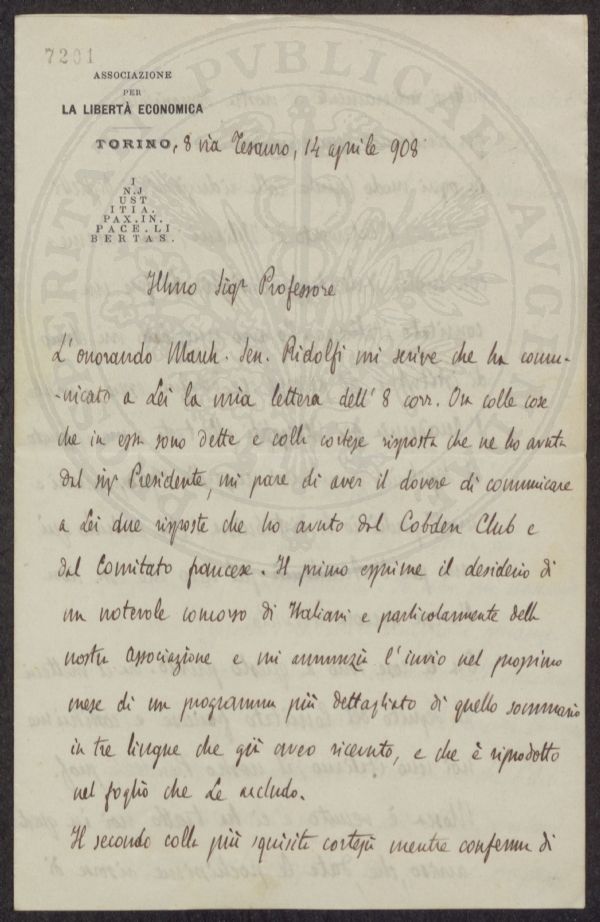 7201
ASSOCIAZIONE
PER
LA LIBERTÀ ECONOMICA
TORINO, 8 via Tesauro, 14 aprile 908
I
N.J
UST
ITIA.
PAX.IN.
PACE.LI
BERTAS.
Illmo Sigr Professore
L'onorando March. Sen. Ridolfi mi scrive che ha comu-
-nicato a Lei la mia lettera dell' 8 corr. Ora colle cose
che in essa sono dette e colla cortese risposta che ne ho avuta
dal sigr Presidente, mi pare di aver il dovere di comunicare
a Lei due risposte che ho avuto dal Cobden Club e
dal Comitato francese. Il primo esprime il desiderio di
un notevole concorso di Italiani e particolarmente della
nostra Associazione e mi annunzia l'invio nel prossimo
mese di un programma più dettagliato di quello sommario
in tre lingue che già avevo ricevuto, e che è riprodotto
nel foglio che Le accludo.
Il secondo colla più squisita cortesia mentre conferma di